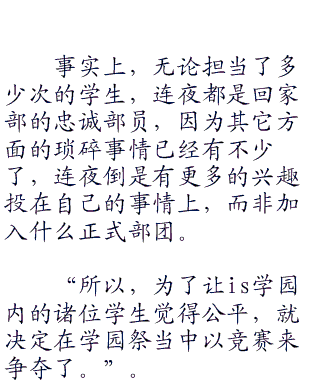 事实上，无论担当了多
少次的学生，连夜都是回家
部的忠诚部员，因为其它方
面的琐碎事情已经有不少
了，连夜倒是有更多的兴趣
投在自己的事情上，而非加
入什么正式部团。
“所以，为了让is学园
内的诸位学生觉得公平，就
决定在学园祭当中以竞赛来
争夺了。”。